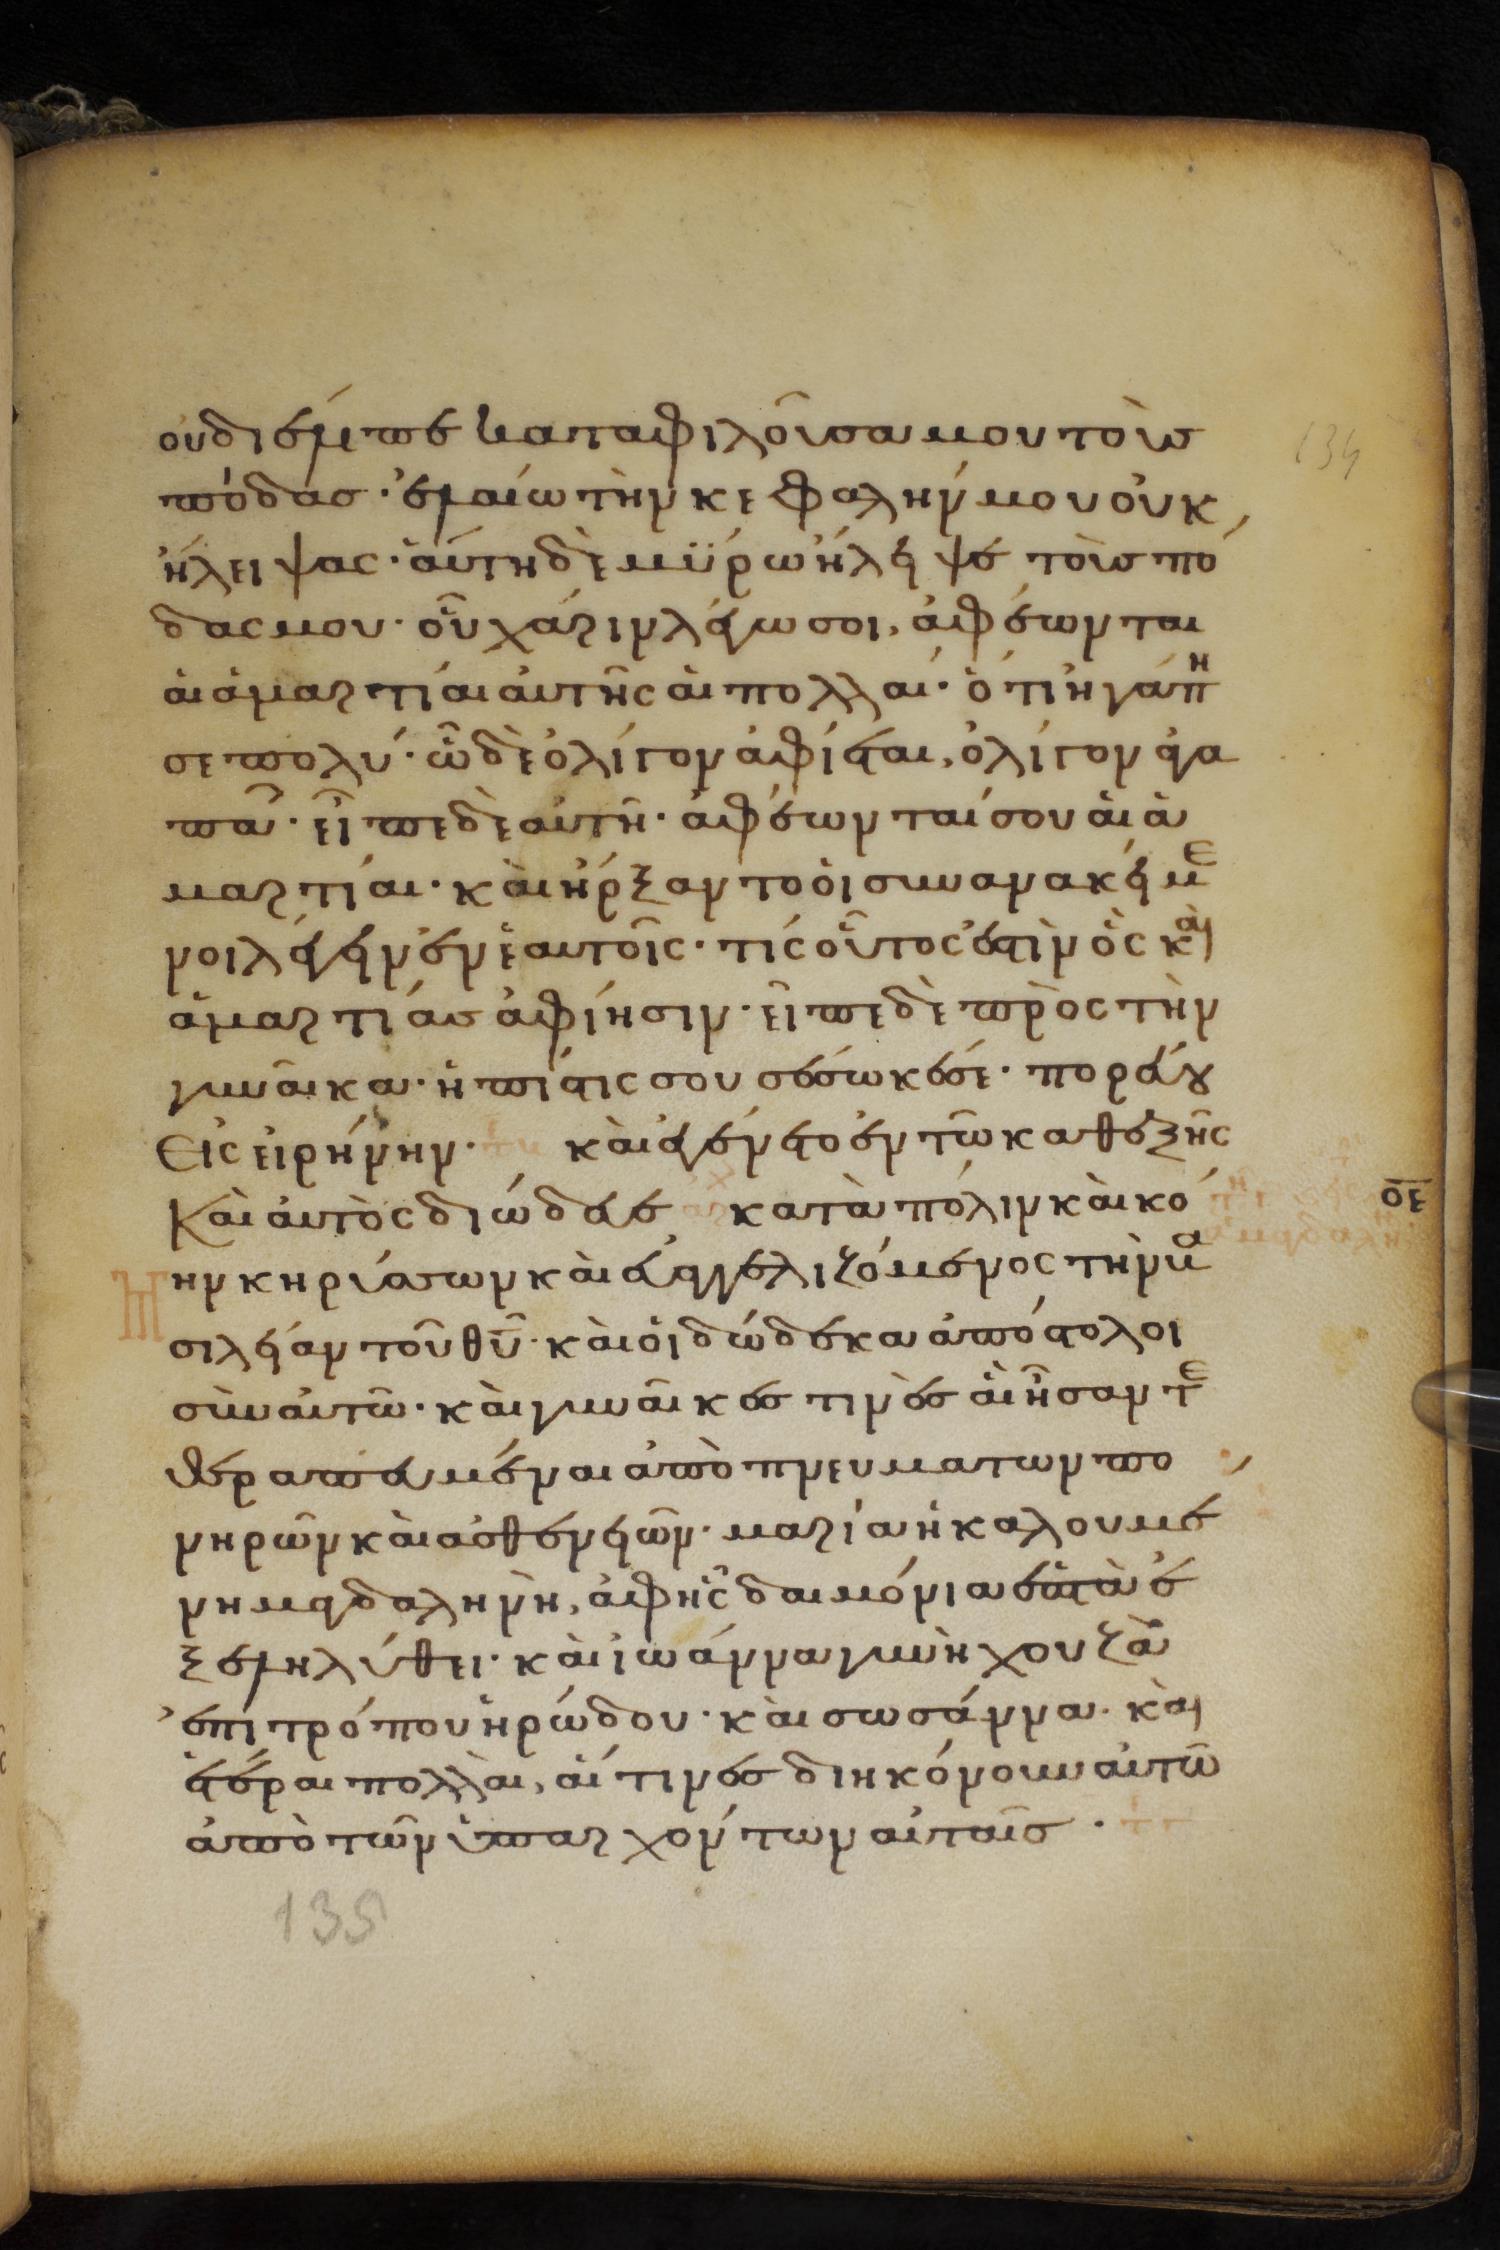 οὐ διέλιπε καταφιλοῦσα μου τοὺς
πόδας· ἐλαίω τὴν κεφαλήν μου οὐκ
ἤλειψας· αὕτη δὲ μΰρω ἤλειψέ τοὺς πό
δας μου· οὗ χάριν λέγω σοι, ἀφέωνται
αἱ ἁμαρτίαι αὐτῆς αἱ πολλαί· ὅτι ἠγάπη
σε πολύ· ὧ δὲ ὀλίγον ἀφίεται, ὀλίγον ἀγα
πᾶ· εἶπε δὲ αὐτῆ· ἀφέωνταί σου αἱ ἁ
μαρτίαι· καὶ ἤρξαντο οἱ συνανακείμε
νοι λέγειν ἐν ἑαυτοῖς· τίς οὗτος ἐστὶν ὃς καὶ
ἁμαρτίας ἀφίησιν· εἶπε δὲ πρὸς τὴν
γυναῖκα· ἡ πίστις σου σέσωκέ σε· πορεύου
εἰς εἰρήνην· καὶ ἐγένετο ἐν τῶ καθεξῆς
Καὶ αὐτὸς διώδευε κατὰ πόλιν καὶ κό
ην κηρύσσων καὶ εὐαγγελιζόμενος τὴν βα
σιλείαν τοῦ θῦ· καὶ οἱ δώδεκα ἀπόστολοι
σὺν αὐτῶ· καὶ γυναῖκες τινὲς αἳ ἦσαν τε
θεραπευμέναι ἀπὸ πνευματων πο
νηρῶν καὶ ἀσθενειῶν· μαρία ἡ καλουμέ
νη μαγδαληνὴ, ἀφ ἧς δαιμόνια ἑπτὰ ἐ
ξεληλύθει· καὶ ἰωάννα γυνὴ χουζᾶ
ἐπιτρόπου ἡρώδου· καὶ σωσάννα· καὶ
ἕτεραι πολλαὶ, αἵτινες διηκόνουν αὐτῶ
ἀπὸ τῶν ὑπαρχόντων αὐταῖς·
οε
134
135